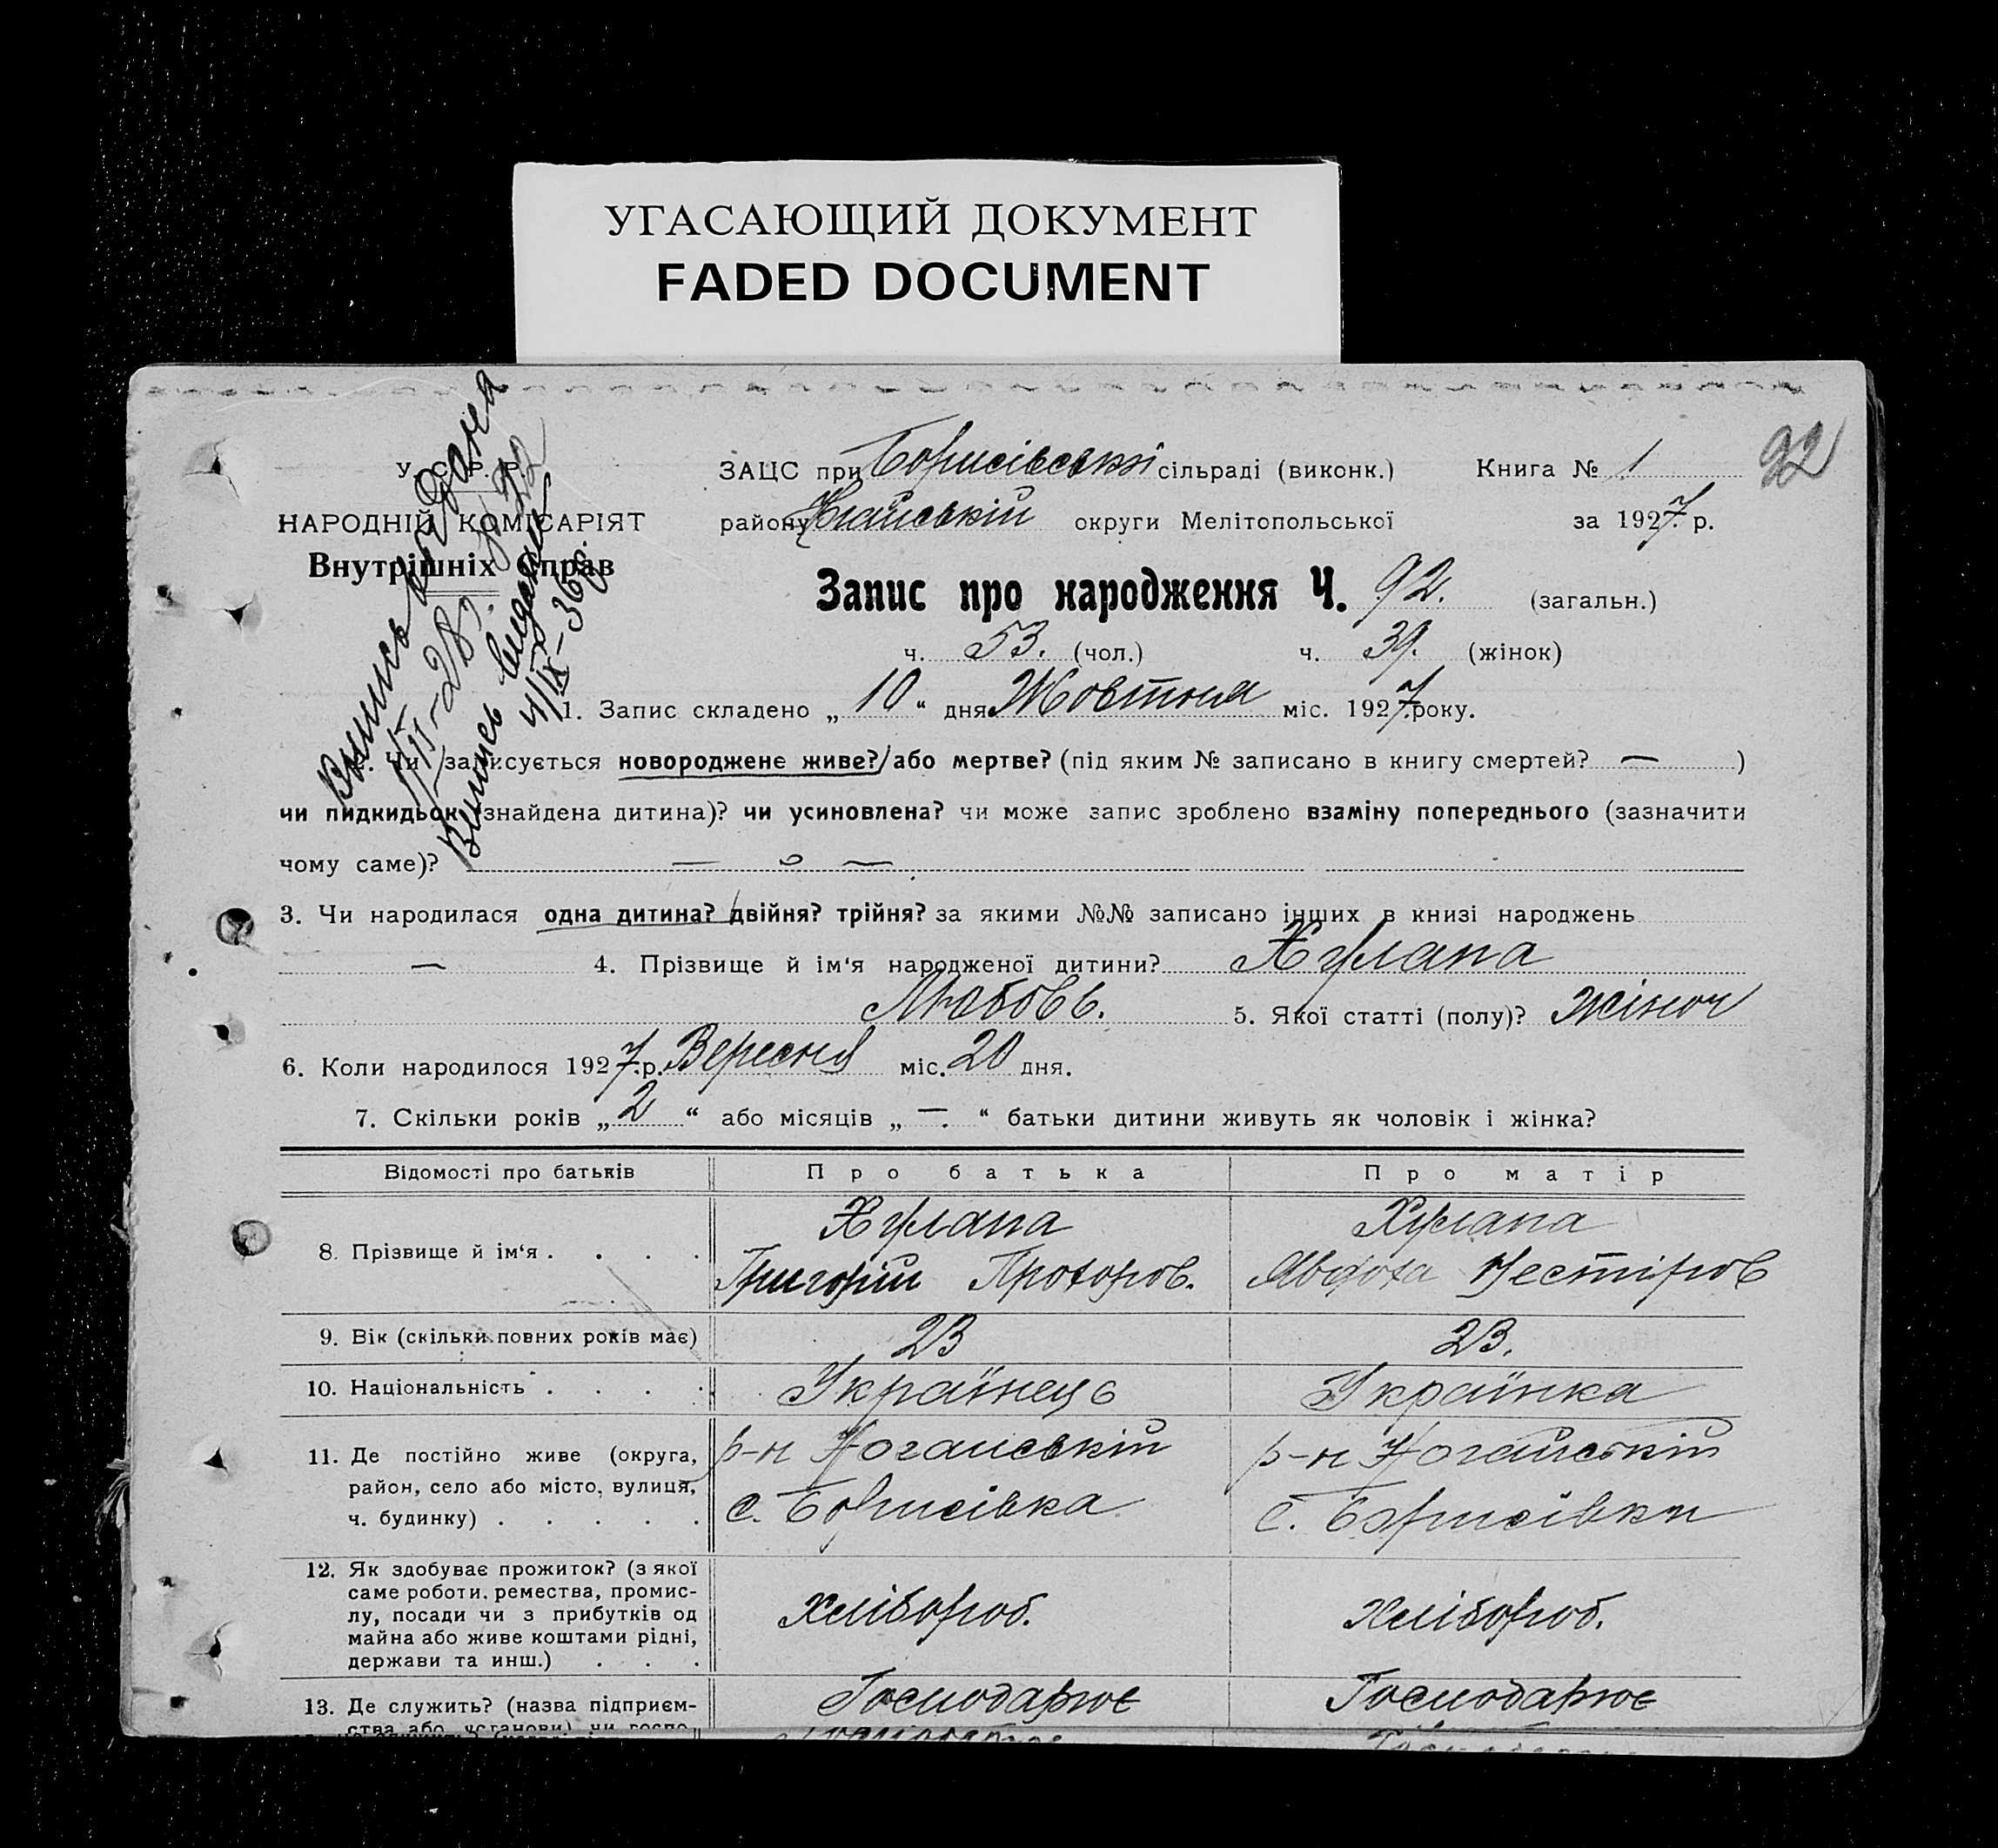 УГАСАЮЩИЙ ДОКУМЕНТ
FADED DOCUMENT
92
У. С. Р. Р.
НАРОДНІЙ КОМІСАРІЯТ
Внутрішніх Справ
Выпись выдана
Випись видана
4/IX-36р.
ЗАЦС при Борисівській сільраді (виконк.) Книга № 1
району округи Мелітопольської за 1927 р.
Запис про народження Ч. 92. (загальн.)
ч. 53. (чол.) ч. 39. (жінок)
1. Запис складено „10“ дня Жовтня міс. 1927 року.
Чи записується новороджене живе? або мертве? (під яким № записано в книгу смертей? — )
чи пидкидьок (знайдена дитина)? чи усиновлена? чи може запис зроблено взаміну попереднього (зазначити
чому саме)?
3. Чи народилася одна дитина? двійня? трійня? за якими №№ записано інших в книзі народжень
— 4. Прізвище й ім'я народженої дитини? Хулапа
Любовь. 5. Якої статті (полу)? Жіноч
6. Коли народилося 1927 р. Вересня міс. 20 дня.
7. Скільки років „2“ або місяців „—“ батьки дитини живуть як чоловік і жінка?
Відомості про батьків Про батька Про матір
8. Прізвище й ім'я . . . . Хулапа Хулапа
Григорій Прохоров. Явдоха Нестіров
9. Вік (скільки повних років має) 23 23.
10. Національність . . . . Українець Українка
11. Де постійно живе (округа, район, село або місто, вулиця, ч. будинку) . . . . .
р-н Ногайській р-н Ногайській
с. Борисівка с. Борисівки
12. Як здобуває прожиток? (з якої
саме роботи, ремества, промис-
лу, посади чи з прибутків од
майна або живе коштами рідні,
держави та инш.) . . .
Хлібороб. Хлібороб.
13. Де служить? (назва підприєм-
ства або установи) чи госпо-
Господарює Господарює